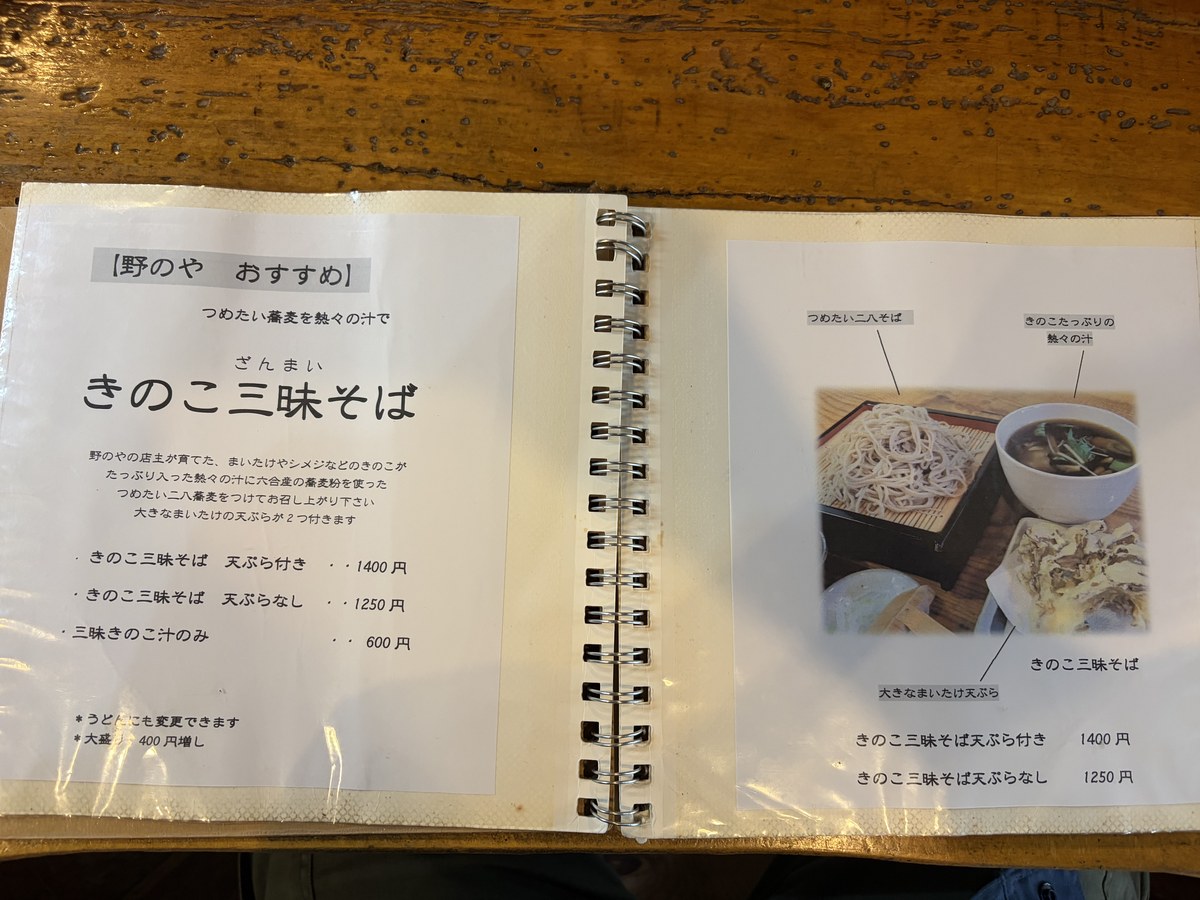 【野のや　おすすめ】
つめたい蕎麦を熱々の汁で
ざんまい
きのこ三昧そば
野のやの店主が育てた、まいたけやシメジなどのきのこが
たっぷり入った熱々の汁に六合産の蕎麦粉を使った
つめたい二八蕎麦をつけてお召し上がり下さい
大きなまいたけの天ぷらが2つ付きます
・きのこ三昧そば　天ぷら付き　・・1400円
・きのこ三昧そば　天ぷらなし　・・1250円
・三昧きのこ汁のみ　・・　600円
＊うどんにも変更できます
＊大盛り　400円増し
つめたい二八そば
きのこたっぷりの
熱々の汁
きのこ三昧そば
大きなまいたけ天ぷら
きのこ三昧そば天ぷら付き　1400円
きのこ三昧そば天ぷらなし　1250円